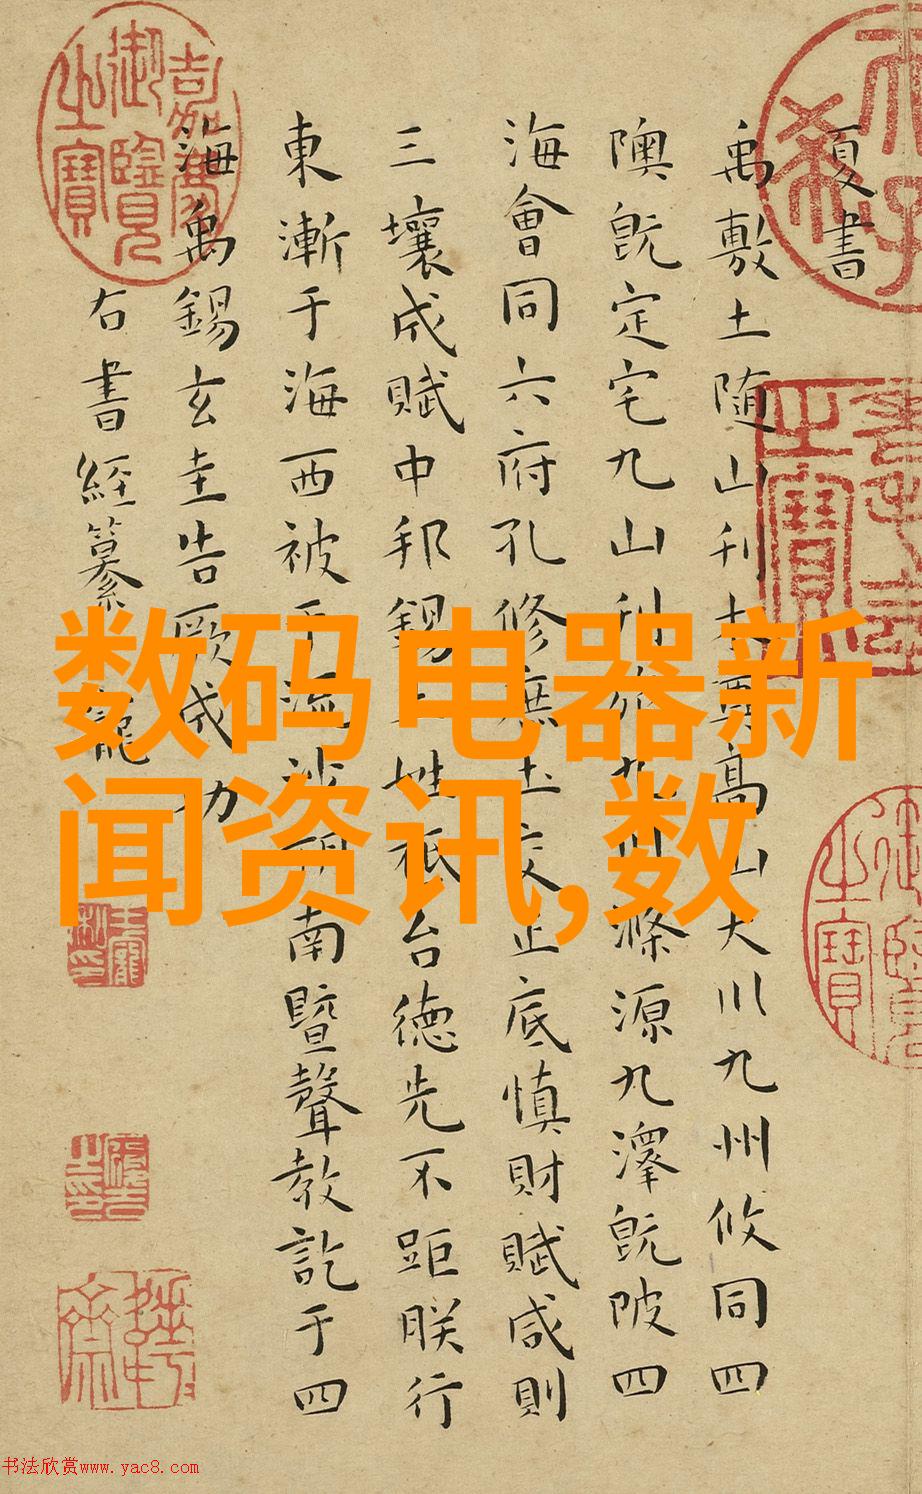 夏書
禹敷土随山刊木奠高山大川九州攸同四
隩既定宅九山刊旅九川滌源九澤既陂四
海會同六府孔修庶土交正底慎財賦咸則
三壤成賦中邦錫土姓祗台德先不距朕行
東漸于海西被于流沙朔南曁聲教訖于四
海禹錫玄圭告厥成功
右書經纂 寵
数码电器新
闻资讯,数
嘉慶
御覽
之寶
書法欣赏www.yac8.com